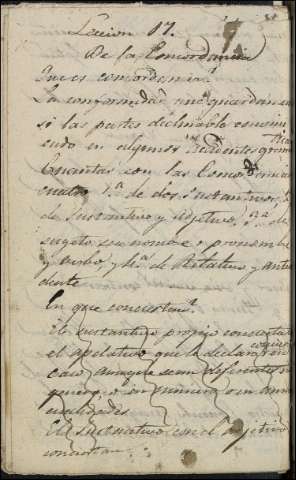 Leccion 17.
De la Concordancia
Que es concordancia?
La conformidad que guardan en
si las partes declinables convini
endo en algunos accidentes grama
Cuantas son las Concordancias
cuatro 1.ª de dos sustantivos, 2ª
de sustantivo y adjetivo, 3.ª de
sugeto sea nombre o pronombre
y verbo, y 4.ª de Relativo y ante
dente
En que conciertan?
El sustantivo propio concierta
el apelativo que le declara en
caso aunque sean diferentes en
genero o en numero o en ambas
cualidades
El sustantivo con el adjetivo
conciertan